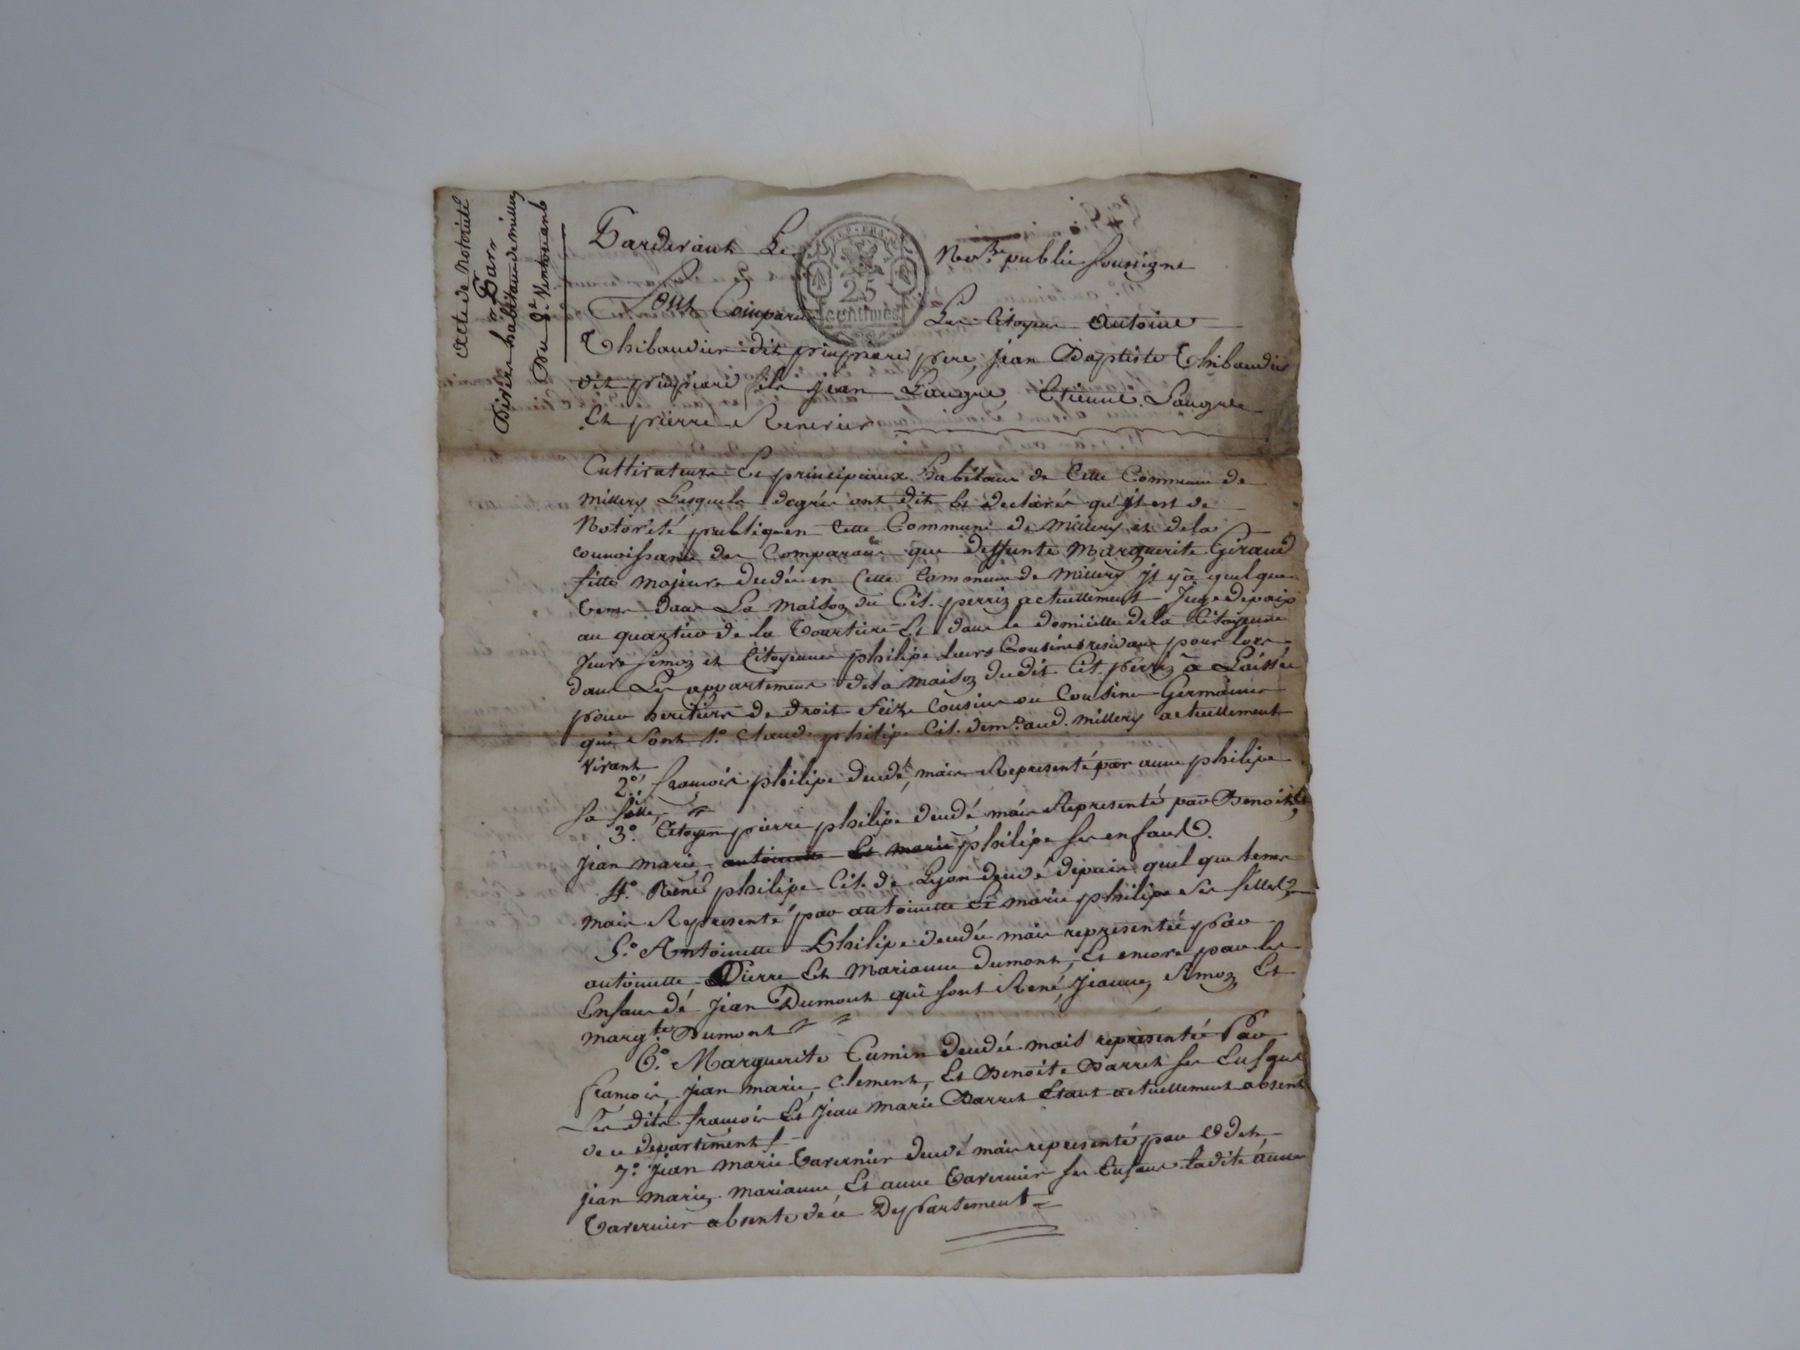 acte de notoriété
Par
Divers habitans de millery
Du 9e Ventose an 6
Pardevant Le Nore. public soussigné
REP. FRA.
25
centimes
Sont Comparus Les Citoyens Antoine
Thibaudier dit prinpriare pere, Jean Baptiste Thibaudier
dit prinpriare fils Jean Laugre, Etienne Laugre
Et pierre Renerier
Cultivateurs Et principaux habitans de Cette Commune de
millery Lesquels degrés ont dit Et declarés qu'jl est de
Notoriété publique en Cette Commune de millery et dela
connoissance des Comparans que deffunte Marguerite Giraud
fille majeure decédée en Cette Commune de Millery jl y a quelque
tems dans La maison du Cit. perrin actuellement Juge depaix
au quartier de la Tourtiere Et dans le domicille dela Citoyenne
veuve Simon et Citoyennes philipe leurs Cousines residans pour lors
dans Les appartemens dela maison dudit Cit. perrin a Laissée
pour heritiers de droit Seize Cousins ou Cousines Germaines
qui sont 1° Claude philipe Cit. demt. aud. millery actuellement
vivant
2°, francois philipe decedé, mais Representé par anne philipe
sa fille,
3° Citoyen pierre philipe decedé mais Representé par Benoit, &
Jean marie antoinette Et marie philipe ses enfans.
4° René philipe Cit. de Lyon decedé depuis quelque tems
mais Representé par antoinette Et marie philipe ses filles
5° Antoinette Philipe decedée mais representée par
antoinette Pierre Et Marianne dumont, Et encore par les
Enfans dé Jean Dumont qui sont René, Jeanne, Simon Et
margte. Dumont
6° Marguerite Cumin decedée mais representée Par
francois, Jean marie, Clement, Et Benoite Barret ses Enfans
Les dits francois Et Jean Marie Barret Etant actuellement absent
de ce departement
7° Jean Marie Tavernier decedé mais representé par
Jean Marie, Marianne Et anne Tavernier ses Enfans ladite anne
Tavernier absente dé ce Departement